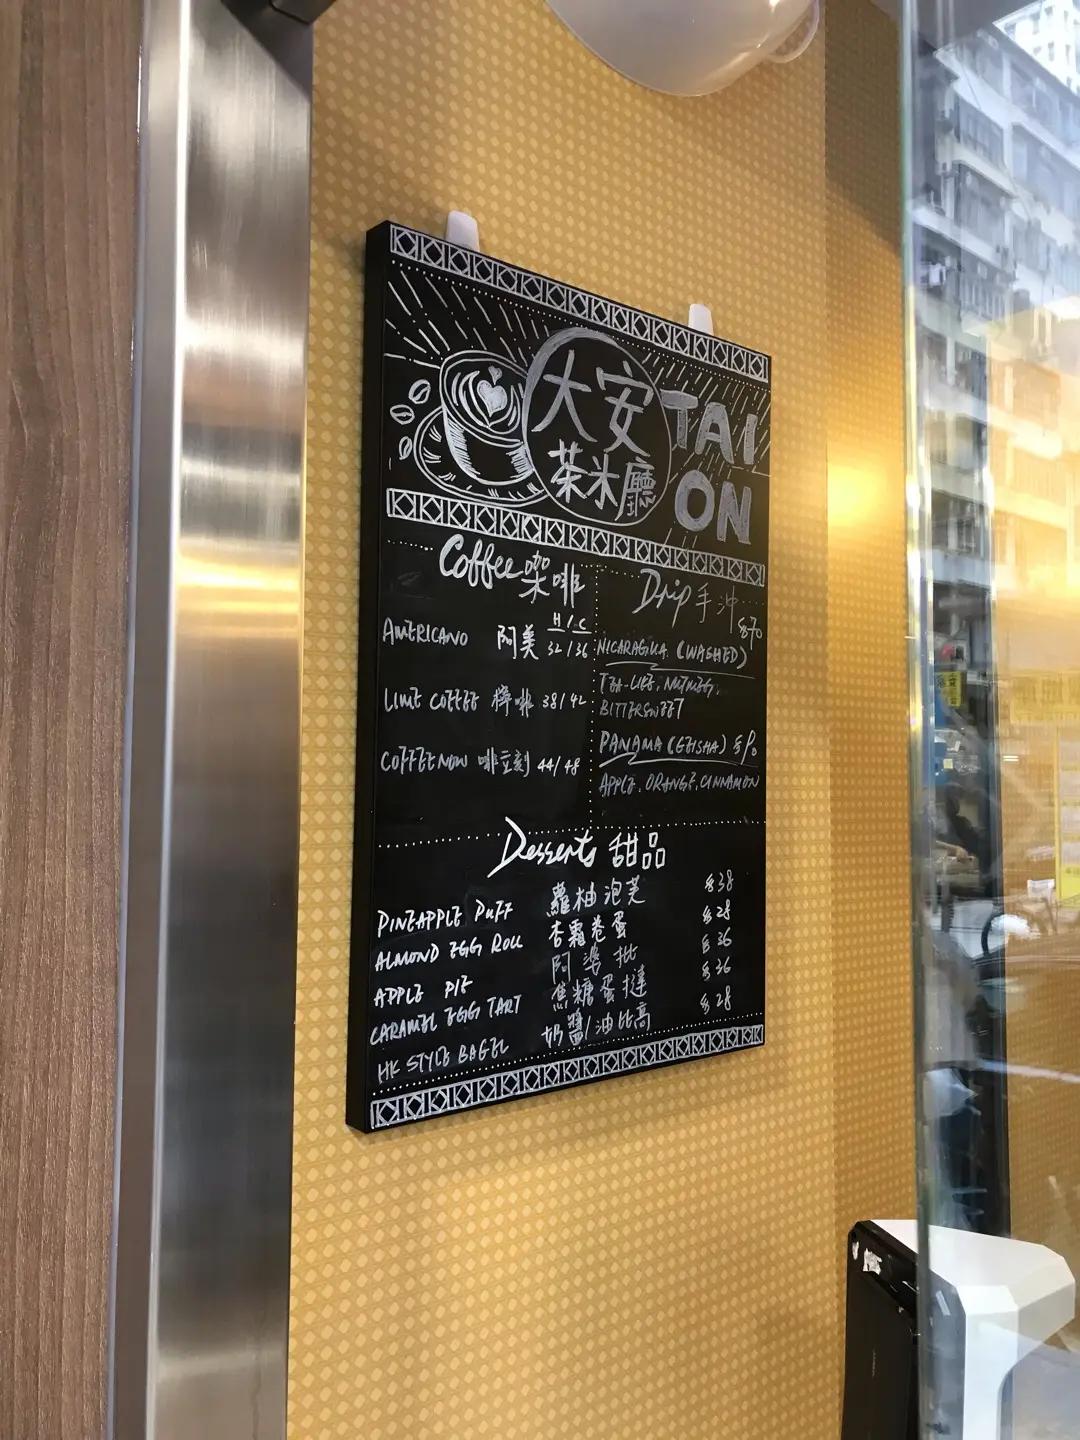 大安
茶米廳
TAI
ON
Coffee 咖啡
H / C
AMERICANO 阿美 32/36
LIME COFFEE 檸啡 38/42
COFFEENOW 啡立刻 44/48
Drip 手沖
$70
NICARAGUA (WASHED)
NUTMEG,
BITTERSWEET
PANAMA (GEISHA) $90
APPLE, ORANGE, CINNAMON
Desserts 甜品
PINEAPPLE PUFF 蘿柚泡芙 $38
ALMOND EGG ROLL 杏霜卷蛋 $28
APPLE PIE 阿婆批 $36
CARAMEL EGG TART 焦糖蛋撻 $36
HK STYLE BAGEL 奶醬/油比高 $28